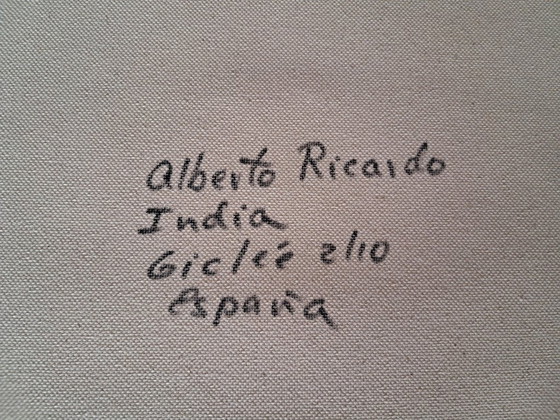 Alberto Ricardo
India
Gicleé 2/10
España